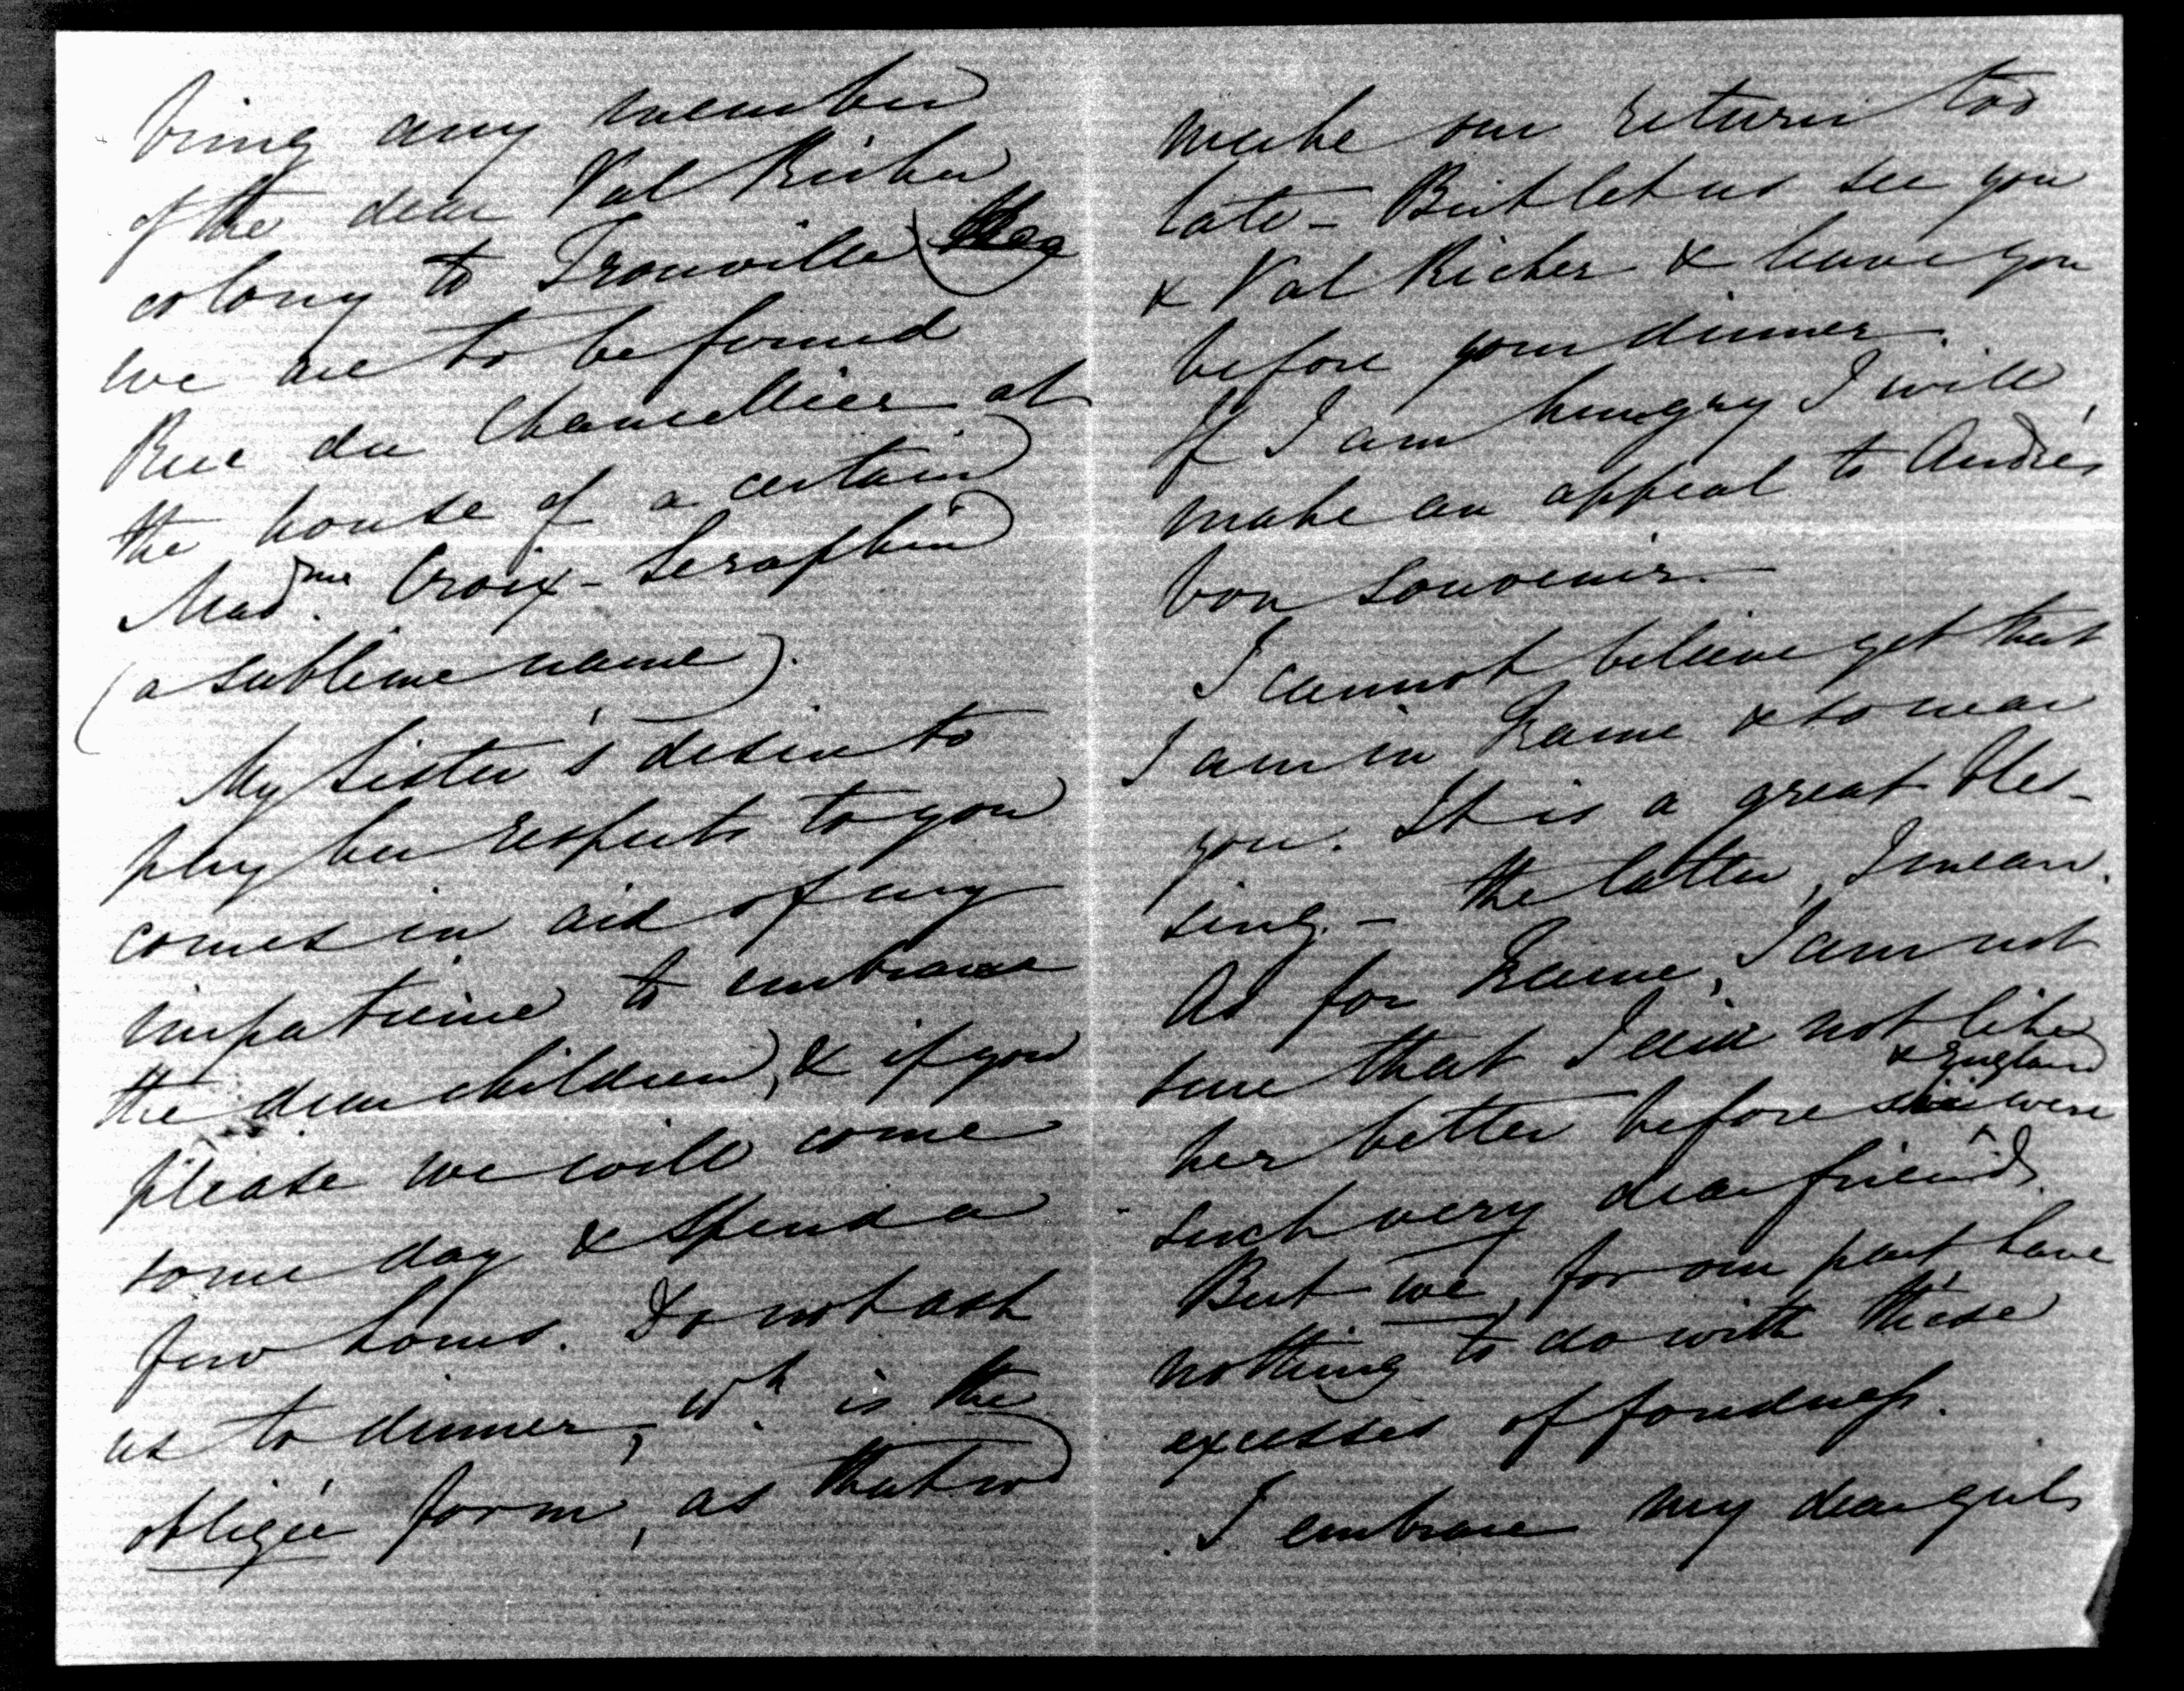 bring any member
of the dear Val Richer
colony to Trouville
we are to be found
Rue du Chancellier at
the house of a certain
Mad.me Croix-Seraphin
(a sublime name).
My Sister's desire to
pay her respects to you
comes in aid of my
impatience to embrace
the dear children, & if you
please we will come
some day & spend a
few hours. Do not ask
us to dinner, wh. is the
obligée form, as that wd
make our return too
late - But let us see you
& Val Richer & leave you
before your dinner.
If I am hungry I will
make an appeal to André's
bon souvenir.
I cannot believe yet that
I am in France & so near
you. It is a great bles-
sing. - the latter, I mean.
As for France, I am not
sure that I did not like
her better before she & England were
such very dear friends.
But we, for our part have
nothing to do with these
excesses of fondness.
I embrace my dear girls